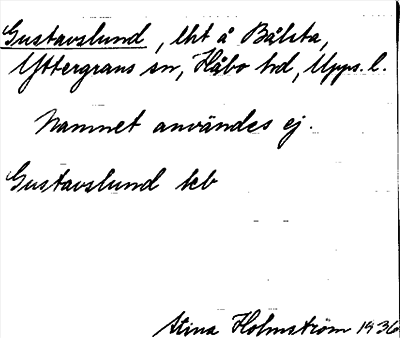 Gustavslund, lht å Bålsta,
Yttergrans sn, Håbo hd, Upps. l.
Namnet användes ej.
Gustavslund kb
Stina Holmström 1936